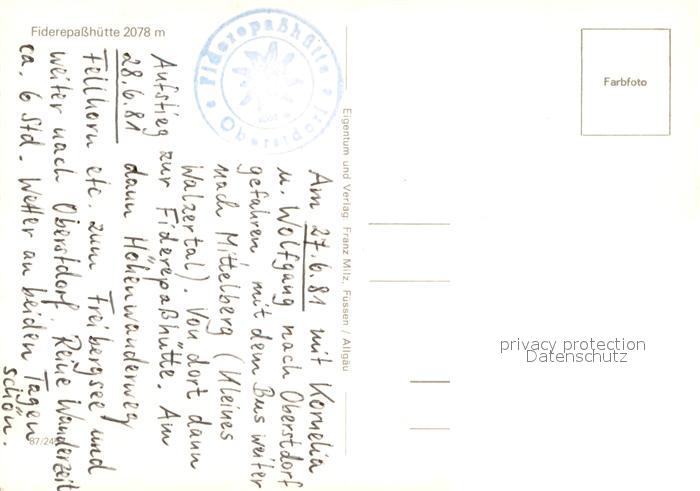 Fiderepaßhütte 2078 m
Fiderepaßhütte
Oberstdorf
Farbfoto
Eigentum und Verlag: Franz Milz, Füssen / Allgäu
Am 27.6.81 mit Kornelia
u. Wolfgang nach Oberstdorf
gefahren mit dem Bus weiter
nach Mittelberg (Kleines
Walzertal). Von dort dann
Aufstieg zur Fiderepaßhütte. Am
28.6.81 dann Höhenwanderweg
Fellhorn etc. zum Freibergsee und
weiter nach Oberstdorf. Reine Wanderzeit
ca. 6 Std. Wetter an beiden Tagen
schön.
privacy protection
Datenschutz